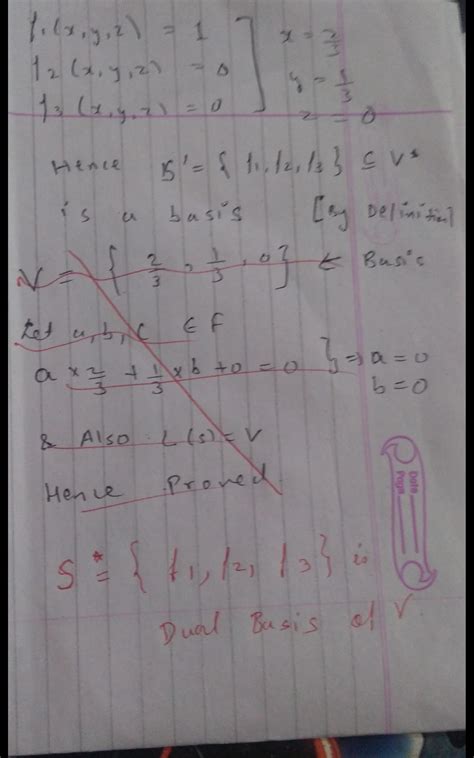 f1(x,y,z) = 1 ] x = 2/3
f2(x,y,z) = 0 y = 1/3
f3(x,y,z) = 0 z = 0
Hence S' = { f1, f2, f3 } ⊆ V*
is a basis [By Definition]
V = { 2/3, 1/3, 0 } ← Basis
Let a, b, c ∈ F
a × 2/3 + 1/3 × b + 0 = 0 } ⇒ a = 0
b = 0
& Also L(s) = V
Hence Proved
Date
Page
S* = { f1, f2, f3 } is
Dual Basis of V.